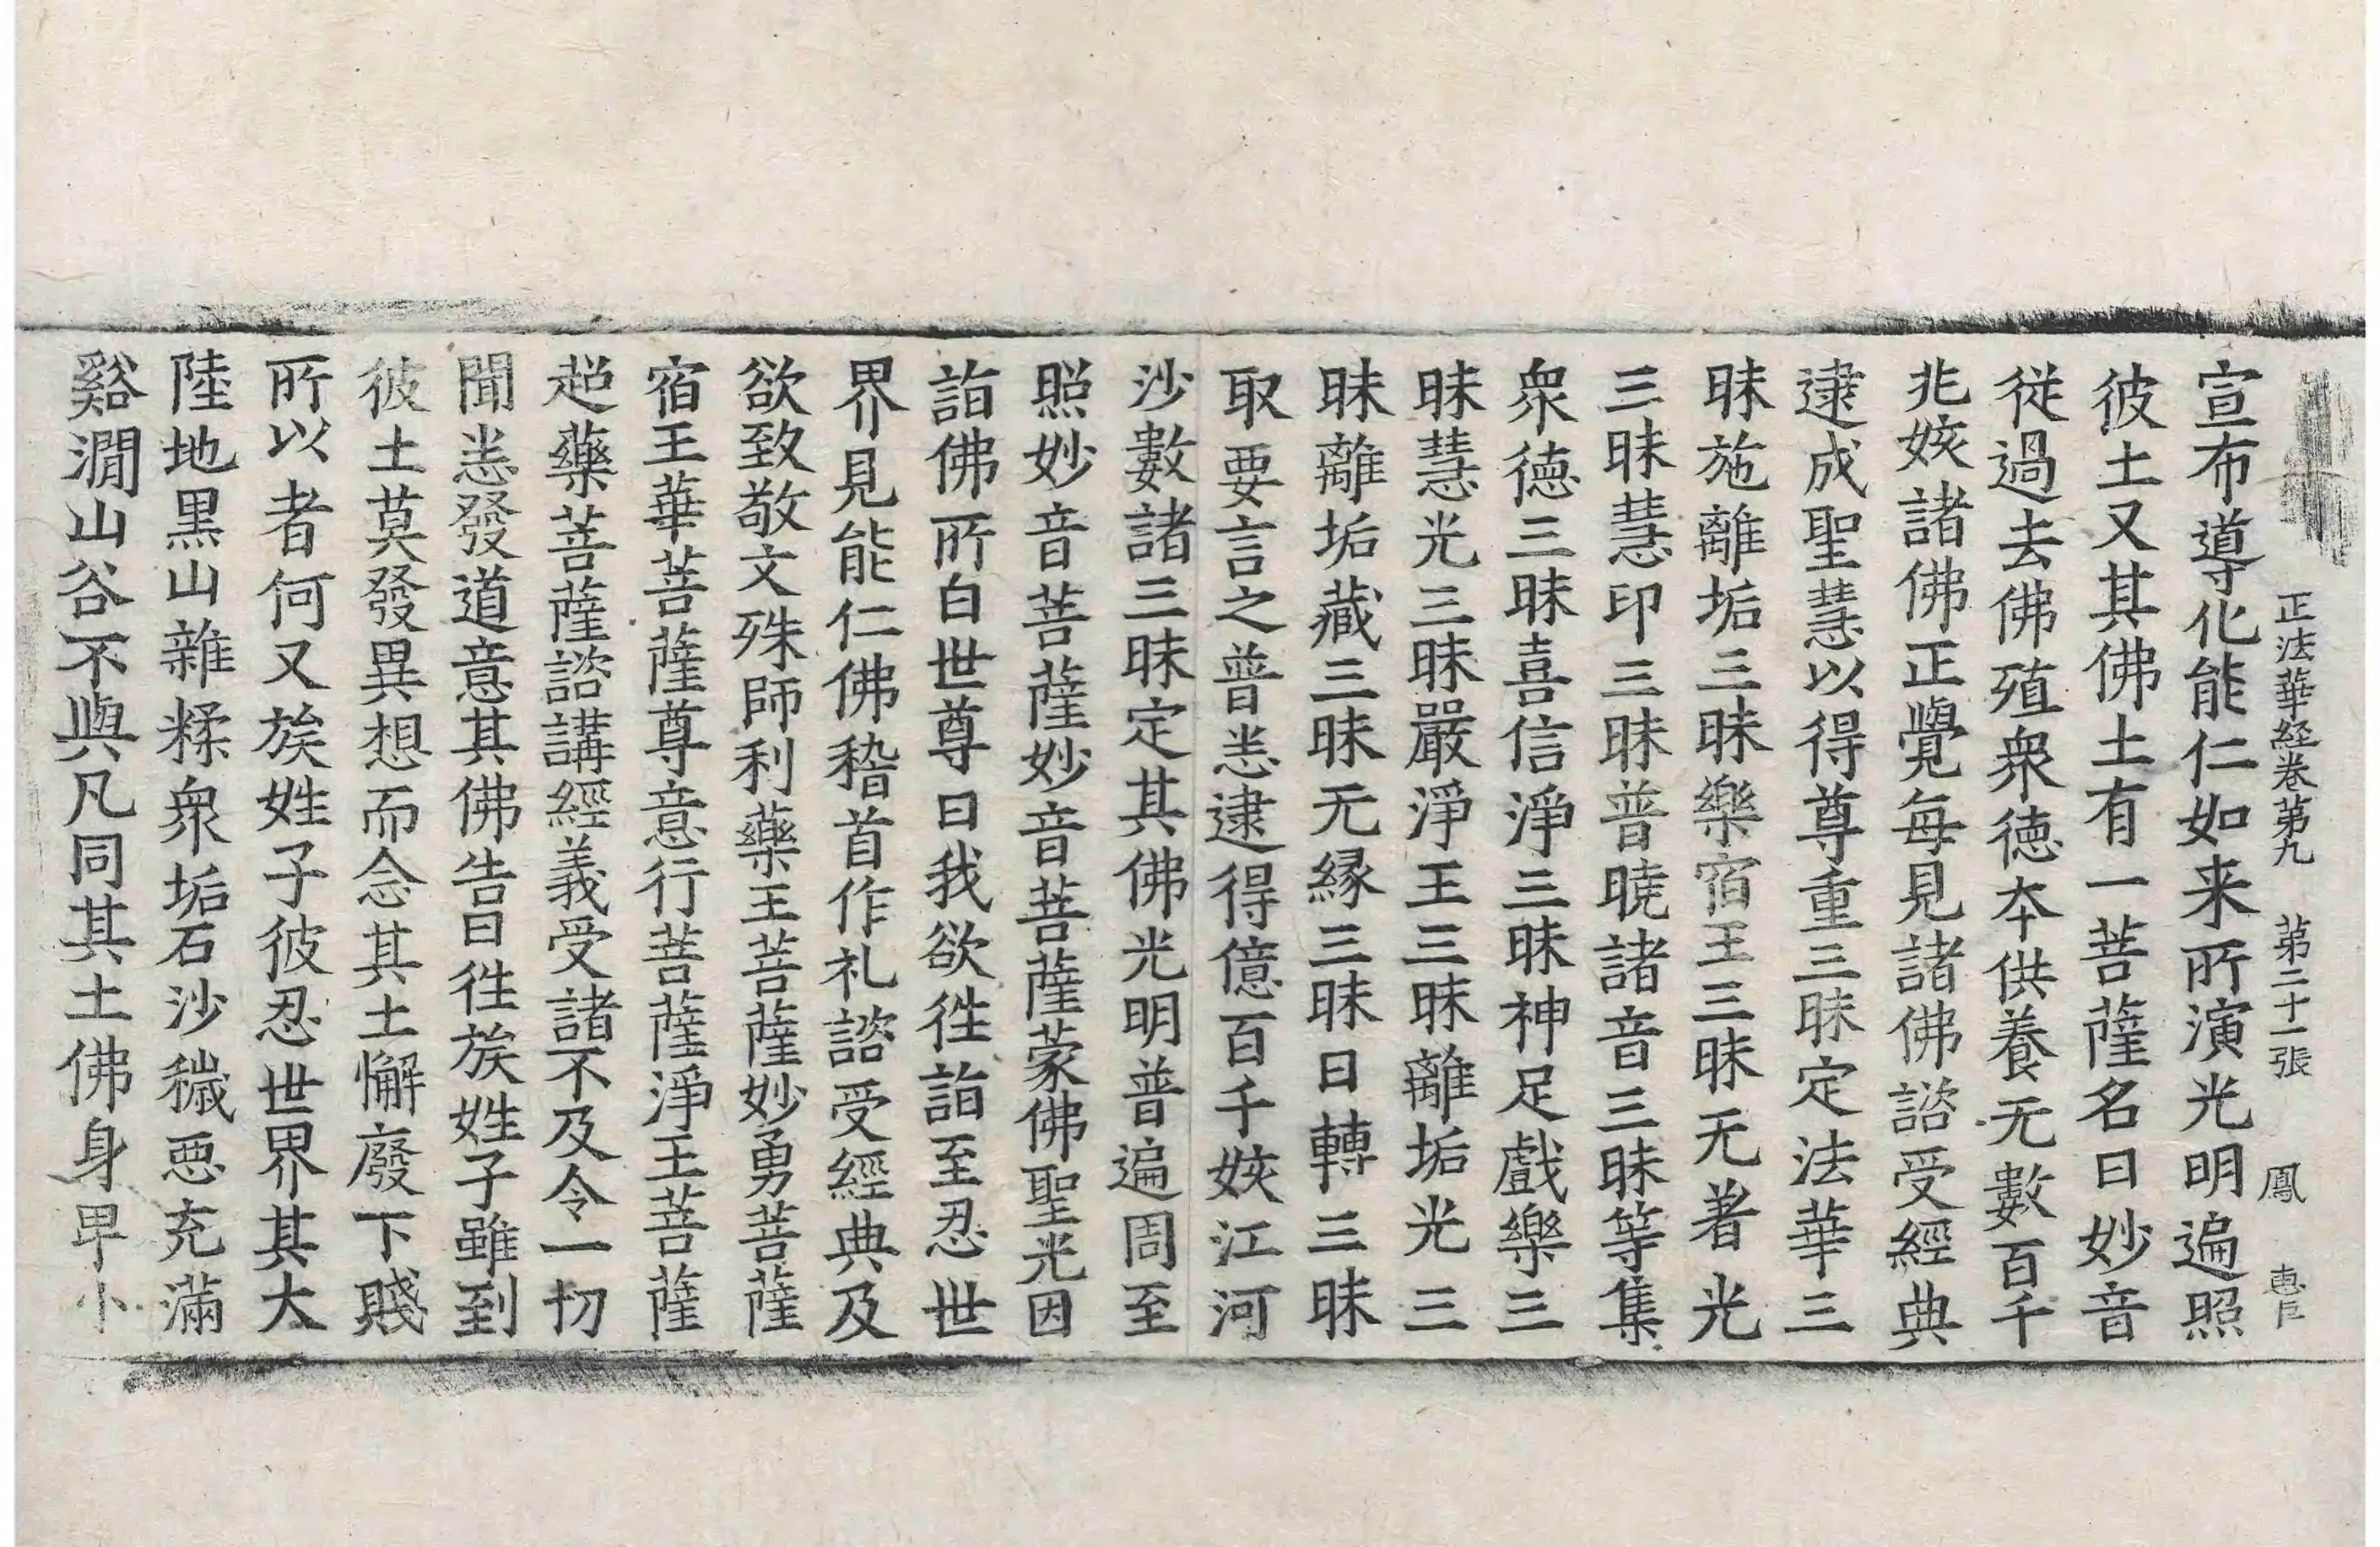 正法華経卷第九 第二十一張 鳳
宣布導化能仁如来所演光明遍照
彼土又其佛土有一菩薩名曰妙音
従過去佛殖衆徳夲供養无數百千
兆姟諸佛正覺每見諸佛諮受經典
逮成聖慧以得尊重三昧定法華三
昧施離垢三昧樂宿王三昧无著光
三昧慧印三昧普曉諸音三昧等集
衆徳三昧喜信淨三昧神足戲樂三
昧慧光三昧嚴淨王三昧離垢光三
昧離垢藏三昧无緣三昧日轉三昧
取要言之普恙逮得億百千姟江河
沙數諸三昧定其佛光明普遍周至
照妙音菩薩妙音菩薩蒙佛聖光因
詣佛所白世尊曰我欲徃詣至忍世
界見能仁佛稽首作礼諮受經典及
欲致敬文殊師利藥王菩薩妙勇菩薩
宿王華菩薩尊意行菩薩淨王菩薩
超藥菩薩諮講經義受諸不及令一切
聞恙發道意其佛告曰徃族姓子雖到
彼土莫發異想而念其土懈廢下賤
所以者何又族姓子彼忍世界其大
陸地黒山雜糅衆垢石沙穢惡充滿
谿澗山谷不與凡同其土佛身卑小